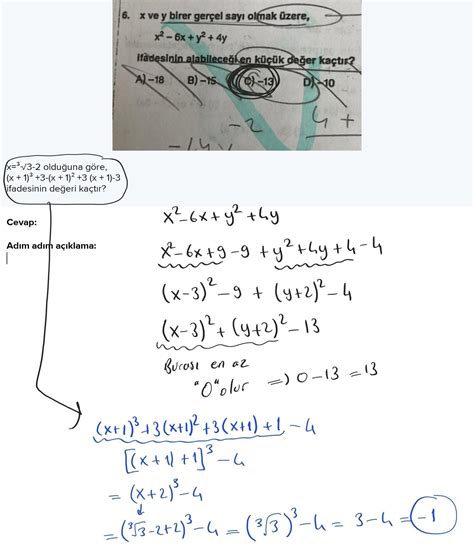 6. x ve y birer gerçel sayı olmak üzere,
x² – 6x + y² + 4y
ifadesinin alabileceği en küçük değer kaçtır?
A) –18 B) –15 C) –13 D) –10
–2
4 +
x=³√3-2 olduğuna göre,
(x + 1)³ +3-(x + 1)² +3 (x + 1)-3
ifadesinin değeri kaçtır?
Cevap:
Adım adım açıklama:
x²-6x+y²+4y
x²-6x+9-9+y²+4y+4-4
(x-3)²-9+(y+2)²-4
(x-3)²+(y+2)²-13
Burası en az
"0" olur => 0-13=13
(x+1)³+3(x+1)²+3(x+1)+1-4
[(x+1)+1]³-4
=(x+2)³-4
=(³√3-2+2)³-4=(³√3)³-4=3-4=-1